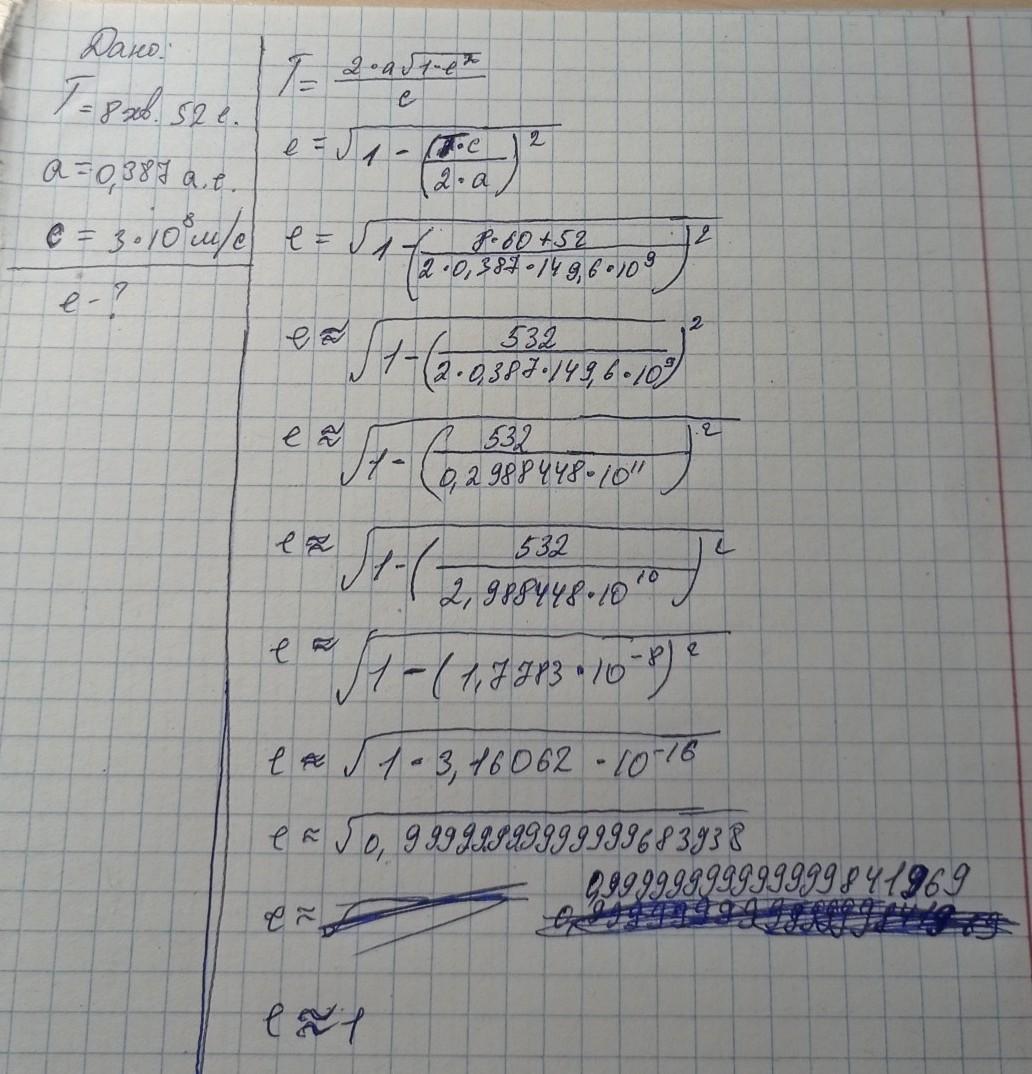 Дано:
T = 8 хв. 52 с.
a = 0,387 а.о.
c = 3·10⁸ м/с
e - ?
T = 2·a√1-e² / c
e = √1 - (T·c / 2·a)²
e = √1 - (8·60+52 / 2·0,387·149,6·10⁹)²
e ≈ √1 - (532 / 2·0,387·149,6·10⁹)²
e ≈ √1 - (532 / 0,2988448·10¹¹)²
e ≈ √1 - (532 / 2,988448·10¹⁰)²
e ≈ √1 - (1,7783·10⁻⁸)²
e ≈ √1 - 3,16062·10⁻¹⁶
e ≈ √0,9999999999999999683938
0,9999999999999999841969
e ≈
e ≈ 1